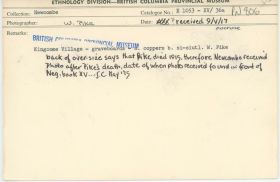 ETHNOLOGY DIVISION—BRITISH COLUMBIA PROVINCIAL MUSEUM
Collection: Newcombe Catalogue No. E 1053 - XV/ 36a PN 906
Photographer: W. Pike Date: received 9/4/17
BRITISH COLUMBIA PROVINCIAL MUSEUM
Kingcome Village - graveboards coppers W. Pike
back of oversize says that Pike died 1915, therefore Newcombe received
photo after Pike's death, date of when photo received found in front of
Neg. book XV - SC May '75